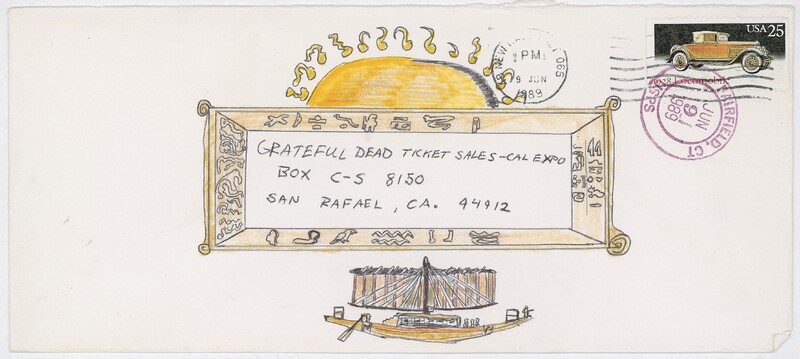 USA 25
1928 Locomobile
PM
9 JUN
1989
065
FAIRFIELD, CT
JUN
9
1989
USPS
GRATEFUL DEAD TICKET SALES-CAL EXPO
BOX C-S 8150
SAN RAFAEL, CA. 94912